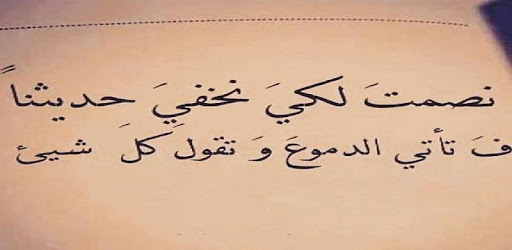 نصمتَ لكيَ نخفيَ حديثناً
فَ تأتي الدموعَ وَ تقولَ كلَ شيئ